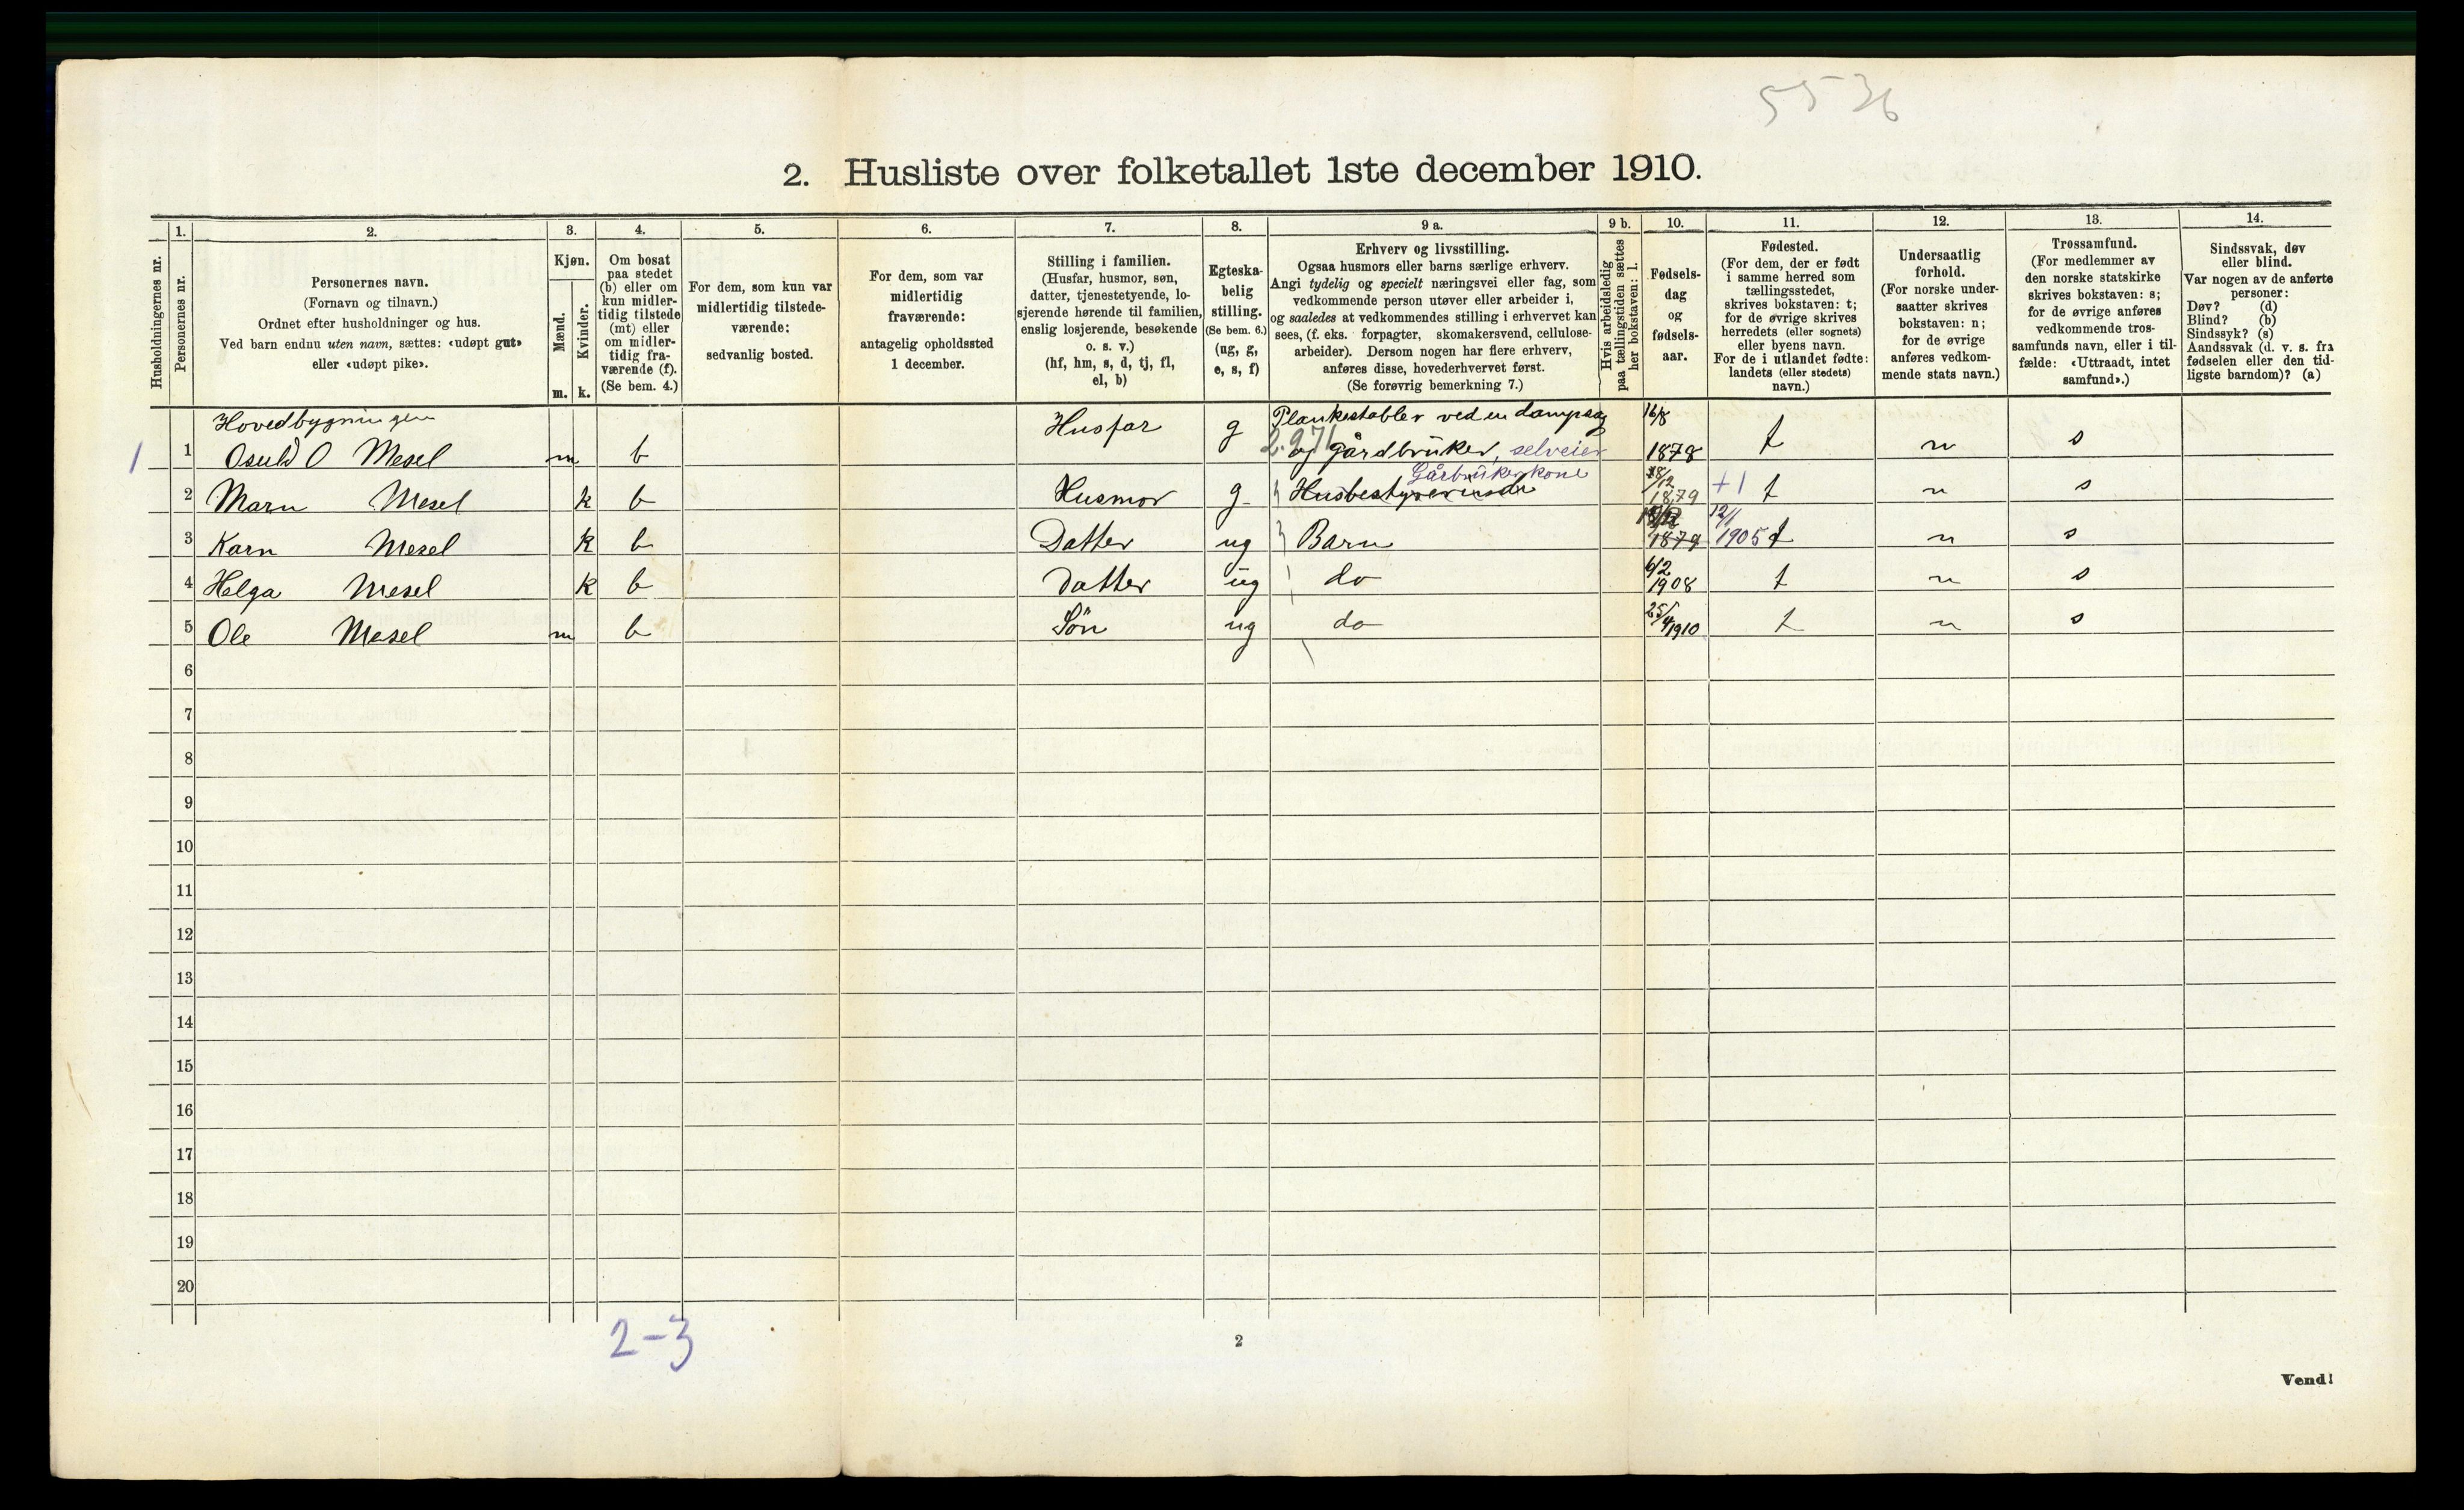 5536
2. Husliste over folketallet 1ste december 1910.
Husholdningernes nr.
1.
Personernes nr.
2.
Personernes navn.
(Fornavn og tilnavn.)
Ordnet efter husholdninger og hus.
Ved barn endnu uten navn, sættes: «udøpt gut»
eller «udøpt pike».
3.
Kjøn.
Mænd.
Kvinder.
m. k.
4.
Om bosat
paa stedet
(b) eller om
kun midler-
tidig tilstede
(mt) eller
om midler-
tidig fra-
værende (f).
(Se bem. 4.)
5.
For dem, som kun var
midlertidig tilstede-
værende:
sedvanlig bosted.
6.
For dem, som var
midlertidig
fraværende:
antagelig opholdssted
1 december.
7.
Stilling i familien.
(Husfar, husmor, søn,
datter, tjenestetyende, lo-
sjerende hørende til familien,
enslig losjerende, besøkende
o. s. v.)
(hf, hm, s, d, tj, fl,
el, b)
8.
Egteska-
belig
stilling.
(Se bem. 6.)
(ug, g,
e, s, f)
9 a.
Erhverv og livsstilling.
Ogsaa husmors eller barns særlige erhverv.
Angi tydelig og specielt næringsvei eller fag, som
vedkommende person utøver eller arbeider i,
og saaledes at vedkommendes stilling i erhvervet kan
sees, (f. eks. forpagter, skomakersvend, cellulose-
arbeider). Dersom nogen har flere erhverv,
anføres disse, hovederhvervet først.
(Se forøvrig bemerkning 7.)
9 b.
Hvis arbeidsledig
paa tællingstiden sættes
her bokstaven: l.
10.
Fødsels-
dag
og
fødsels-
aar.
11.
Fødested.
(For dem, der er født
i samme herred som
tællingsstedet,
skrives bokstaven: t;
for de øvrige skrives
herredets (eller sognets)
eller byens navn.
For de i utlandet fødte:
landets (eller stedets)
navn.)
12.
Undersaatlig
forhold.
(For norske under-
saatter skrives
bokstaven: n;
for de øvrige
anføres vedkom-
mende stats navn.)
13.
Trossamfund.
(For medlemmer av
den norske statskirke
skrives bokstaven: s;
for de øvrige anføres
vedkommende tros-
samfunds navn, eller i til-
fælde: «Uttraadt, intet
samfund».)
14.
Sindssvak, døv
eller blind.
Var nogen av de anførte
personer:
Døv? (d)
Blind? (b)
Sindssyk? (s)
Aandssvak (d. v. s. fra
fødselen eller den tid-
ligste barndom)? (a)
Hovedbygningen
1 1 Osuld O Mesel m b Husfar g Plankestabler ved en dampsag 16/8
2.971 og gårdbrüker, selveier 1878 t n s
Gårbrükerkone
2 Marn Mesel k b Husmor g Husbestyrerinde 18/12 1879 +1 t n s
3 Karn Mesel k b Datter ug Barn 1879 12/1 1905 t n s
4 Helga Mesel k b Datter ug do 6/2 1908 t n s
5 Ole Mesel m b Sön ug do 25/4 1910 t n s
6
7
8
9
10
11
12
13
14
15
16
17
18
19
20
2-3
2
Vend!